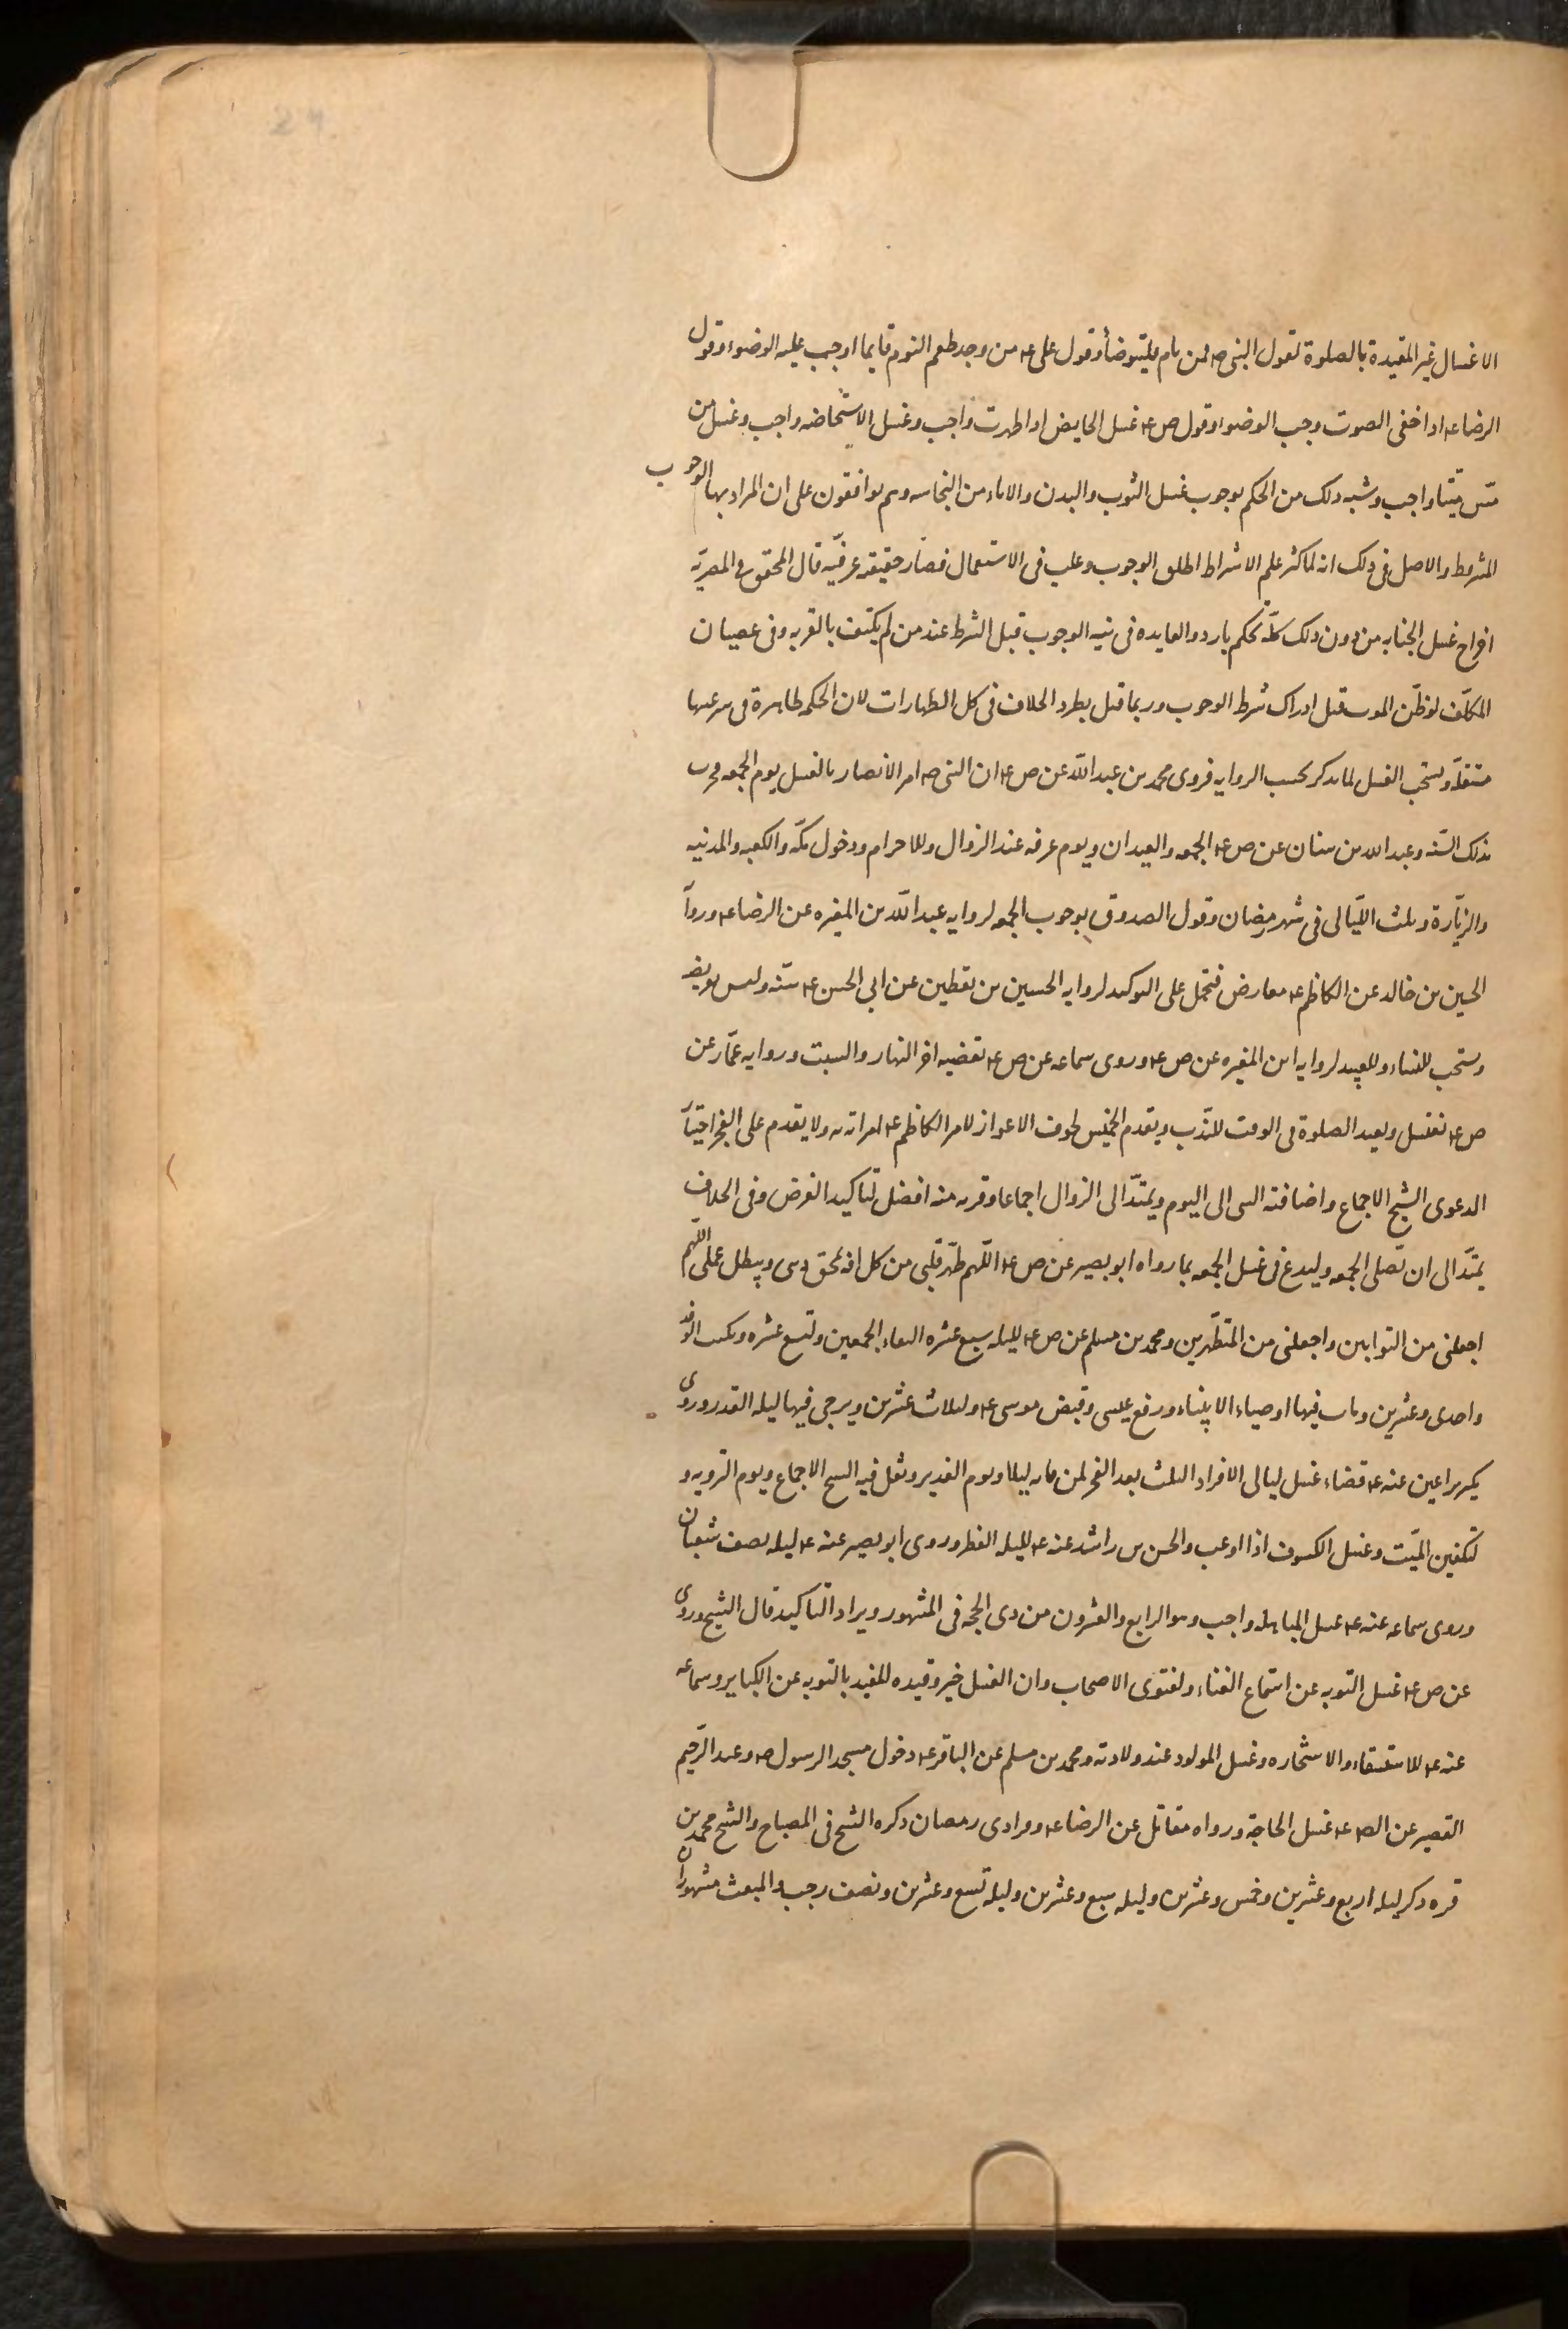 الاغسال غير المقيدة بالصلوة لقول النبی ص فمن نام فليتوضأ وقول علی ع من وجد طعم النوم قايما اوجب عليه الوضوء وقول
الرضا ع اذا خفی الصوت وجب الوضوء وقول ص ع غسل الحايض اذا طهرت واجب وغسل الاستحاضه واجب وغسل من
مسّ ميتا واجب وشبه ذلك من الحكم بوجوب غسل الثوب والبدن والاناء من النجاسه وهم يوافقون علی ان المراد بها الوجوب
المشروط والاصل فی ذلك انه لما كثر علم الاشراط اطلق الوجوب وغلب فی الاستعمال فصار حقيقه عرفيّه قال المحقق فی المصريّه
اخراج غسل الجنابه من دون ذلك كلّه تحكم بارد والفايده فی نيه الوجوب قبل الشرط عند من لم يكتف بالقربه وفی عصيان
المكلّف لو ظنّ الموت قبل ادراك شرط الوجوب وربما قيل بطرد الخلاف فی كل الطهارات لان الحكمه ظاهرة فی شرعيتها
مستقلّه ويستحب الغسل لما يذكر بحسب الروايه فروی محمد بن عبد اللّه عن ص ع ان النبی ص امر الانصار بالغسل يوم الجمعه فجرت
بذلك السنّه وعبد الله بن سنان عن ص ع الجمعه والعيدان ويوم عرفه عند الزوال وللاحرام ودخول مكّه والكعبه والمدينه
والزيّارة وثلث اللّيالی فی شهر رمضان وقول الصدوق بوجوب الجمعه لروايه عبد اللّه بن المغيره عن الرضا ع وروآ
الحسين بن خالد عن الكاظم ع معارض فتحمل علی التوكيد لروايه الحسين بن يقطين عن ابی الحسن ع سنّه وليس بفريضه
ويستحب للنساء وللعبيد لروايه ابن المغيره عن ص ع وروی سماعه عن ص ع تقضيه اخر النهار والسبت وروايه عمّار عن
ص ع تغتسل ويعيد الصلوة فی الوقت للنّدب ويقدم الخميس لخوف الاعواز لامر الكاظم ع امراته به ولا يقدم علی الفجر اختيآ
لدعوی الشيخ الاجماع واضافته الی اليوم ويمتدّ الی الزوال اجماعا وقربه منه افضل لتاكيد الغرض وفی الخلاف
يمتدّ الی ان تصلی الجمعه وليدع فی غسل الجمعه بما رواه ابو بصير عن ص ع اللّهم طهّر قلبی من كل افه تمحق دينی ويبطل عملی اللّهم
اجعلنی من التوابين واجعلنی من المتطهّرين ومحمد بن مسلم عن ص ع لليله سبع عشره التقاء الجمعين وتسع عشره وتكتب الوفد
واحدی وعشرين ومات فيها اوصياء الانبياء ورفع عيسی وقبض موسی ع وثلاث عشرين ويرجی فيها ليله القدر وروی
بكير بن اعين عنه ع قضاء غسل ليالی الافراد الثلث بعد الفجر لمن فاته ليلا ويوم الغدير ونقل فيه الشيخ الاجماع ويوم الترويه و
لتكفين الميّت وغسل الكسوف اذا اوعب والحسن بن راشد عنه ع لليله الفطر وروی ابو بصير عنه ع ليله نصف شعبان
وروی سماعه عنه ع غسل المباهله واجب وهو الرابع والعشرون من ذی الحجه فی المشهور ويراد التاكيد قال الشيخ وروی
عن ص ع غسل التوبه عن استماع الغناء ولفتوی الاصحاب وان الغسل خير وقيده المفيد بالتوبه عن الكباير وسماعه
عنه ع للاستسقاء والاستخاره وغسل المولود عند ولادته ومحمد بن مسلم عن الباقر ع دخول مسجد الرسول ص وعبد الرّحيم
القصير عن الص ع غسل الحاجة ورواه مقاتل عن الرضا ع وفرادی رمضان ذكره الشيخ فی المصباح والشيخ محمد بن
قره ذكر ليله اربع وعشرين وخمس وعشرين وليله سبع وعشرين وليله تسع وعشرين ونصف رجب والمبعث مشهوران